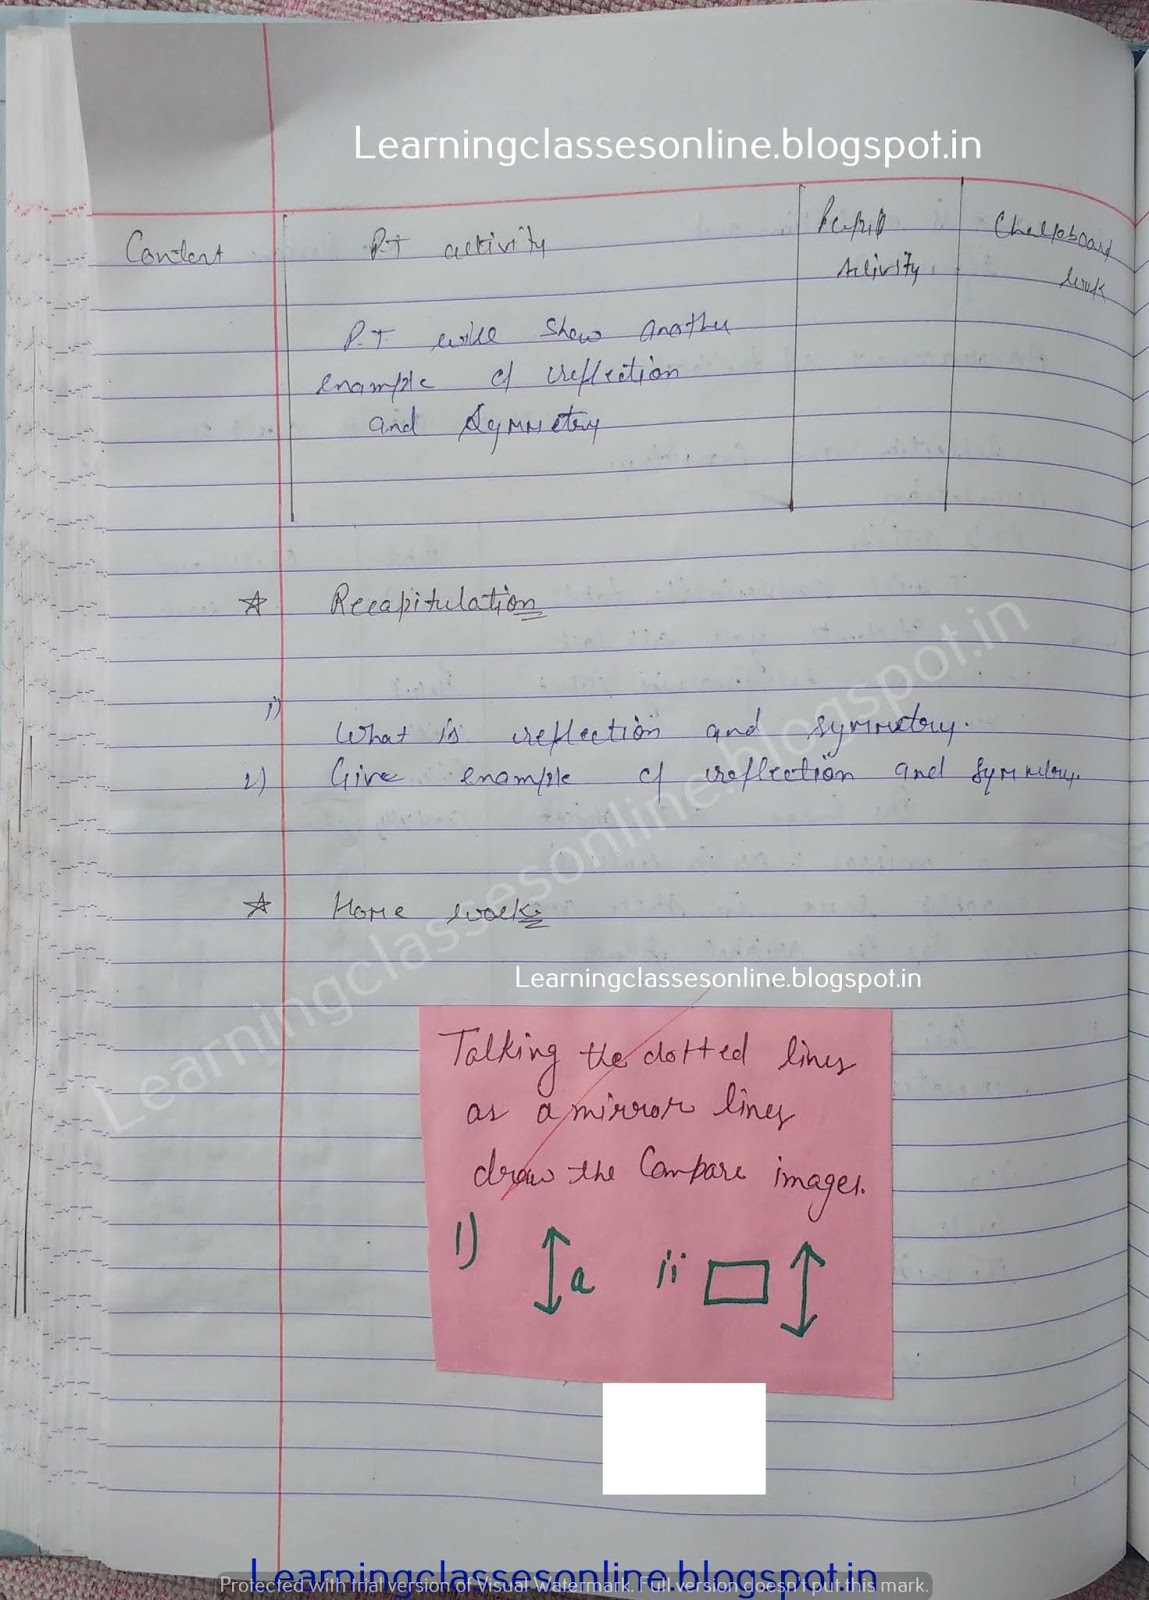 Learningclassesonline.blogspot.in
Content P.T activity Pupil Activity Chalkboard work
P.T. will show another
example of reflection
and symmetry
Recapitulation
1) What is reflection and symmetry.
2) Give example of reflection and symmetry.
Home work:
Learningclassesonline.blogspot.in
Learningclassesonline.blogspot.in
Talking the dotted lines
as a mirror lines
draw the Compare images.
1) a ii
Learningclassesonline.blogspot.in
Protected with trial version of Visual Watermark. Full version doesn't put this mark.